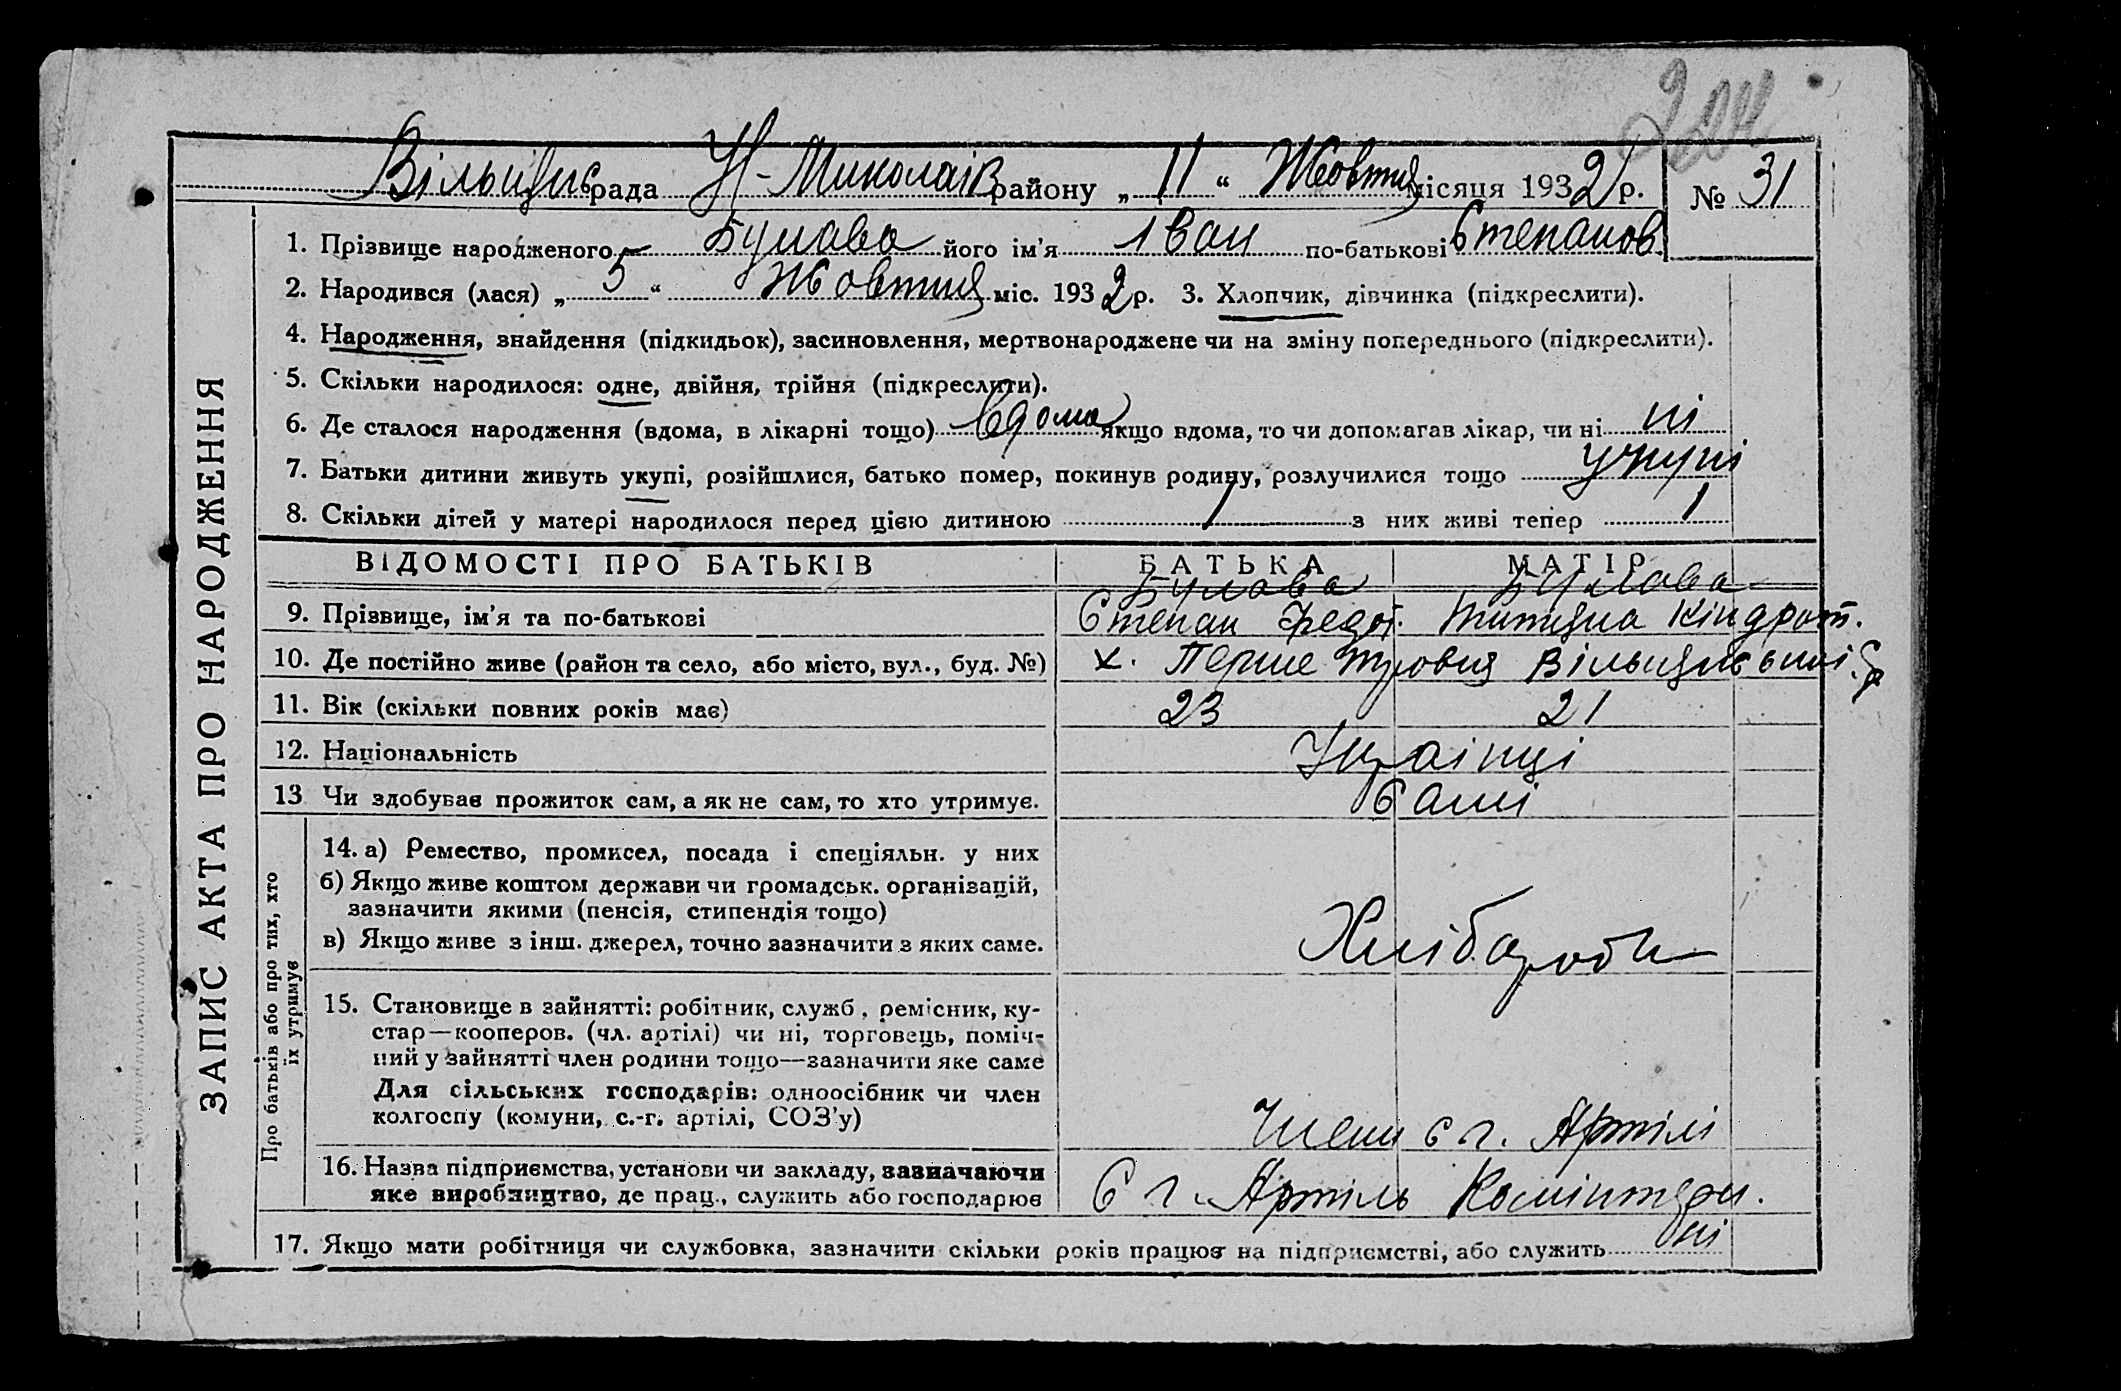 204
Вільцянс рада Н-Миколаїв району „ 11 “ Жовтня місяця 1932 р. № 31
1. Прізвище народженого Булава його ім’я Іван по-батькові Степанов
2. Народився (лася) „ 5 “ Жовтня міс. 1932 р. 3. Хлопчик, дівчинка (підкреслити).
4. Народження, знайдення (підкидьок), засиновлення, мертвонароджене чи на зміну попереднього (підкреслити).
5. Скільки народилося: одне, двійня, трійня (підкреслити).
6. Де сталося народження (вдома, в лікарні тощо) вдома якщо вдома, то чи допомагав лікар, чи ні ні
7. Батьки дитини живуть укупі, розійшлися, батько помер, покинув родину, розлучилися тощо укупі
8. Скільки дітей у матері народилося перед цією дитиною 1 з них живі тепер 1
ВІДОМОСТІ ПРО БАТЬКІВ БАТЬКА МАТІР
Булава Булава
9. Прізвище, ім’я та по-батькові Степан Федот. Титяна Кіндрат.
10. Де постійно живе (район та село, або місто, вул., буд. №) х. Перше Травня
11. Вік (скільки повних років має) 23 21
12. Національність Українці
13 Чи здобував прожиток сам, а як не сам, то хто утримує. Самі
14. а) Ремество, промисел, посада і спеціяльн. у них
б) Якщо живе коштом держави чи громадськ. організацій,
зазначити якими (пенсія, стипендія тощо)
в) Якщо живе з інш. джерел, точно зазначити з яких саме. Хлібароби
15. Становище в зайнятті: робітник, служб., ремісник, ку-
стар—кооперов. (чл. артілі) чи ні, торговець, поміч-
ний у зайнятті член родини тощо—зазначити яке саме
Для сільських господарів: одноосібник чи член
колгоспу (комуни, с.-г. артілі, СОЗ’у) Члени с г. Артілі
16. Назва підприємства, установи чи закладу, зазначаючи
яке виробництво, де прац., служить або господарює С г. Артіль Комінтерн.
17. Якщо мати робітниця чи службовка, зазначити скільки років працює на підприємстві, або служить ні
ЗАПИС АКТА ПРО НАРОДЖЕННЯ
Про батьків або про тих, хто
їх утримує